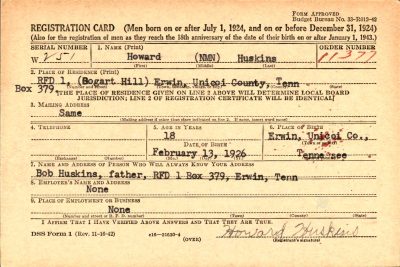 FORM APPROVED
Budget Bureau No. 33-R012-42
REGISTRATION CARD (Men born on or after July 1, 1924, and on or before December 31, 1924)
(Also for the registration of men as they reach the 18th anniversary of the date of their birth on or after January 1, 1943.)
SERIAL NUMBER 1. NAME (Print) ORDER NUMBER
W 251 Howard (NMN) Huskins 11377
2. PLACE OF RESIDENCE (Print)
RFD 1, (Bogart Hill) Erwin, Unicoi County, Tenn
Box 379
THE PLACE OF RESIDENCE GIVEN ON LINE 2 ABOVE WILL DETERMINE LOCAL BOARD
JURISDICTION; LINE 2 OF REGISTRATION CERTIFICATE WILL BE IDENTICAL
3. MAILING ADDRESS
Same
[Mailing address if other than place indicated on line 2. If same, insert word same]
4. TELEPHONE 5. AGE IN YEARS 6. PLACE OF BIRTH
18 Erwin, Unicoi Co.,
DATE OF BIRTH
February 13, 1926 Tennessee
7. NAME AND ADDRESS OF PERSON WHO WILL ALWAYS KNOW YOUR ADDRESS
Bob Huskins, father, RFD 1 Box 379, Erwin, Tenn
8. EMPLOYER'S NAME AND ADDRESS
None
9. PLACE OF EMPLOYMENT OR BUSINESS
None
(Number and street or R. F. D. number) (Town) (County) (State)
I AFFIRM THAT I HAVE VERIFIED ABOVE ANSWERS AND THAT THEY ARE TRUE.
DSS Form 1 (Rev. 11-16-42) (OVER) Howard Huskins
(Registrant's signature)